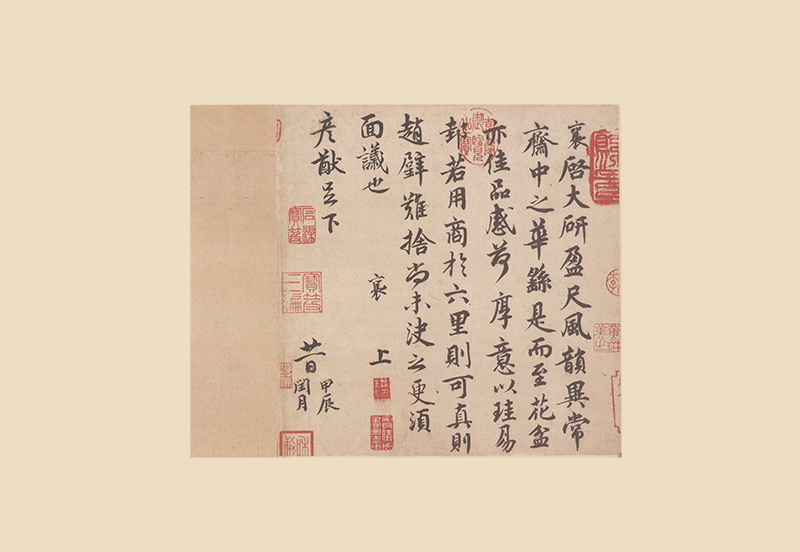 襄啓大研盈尺風韻異常
齋中之華繇是而至花盆
亦佳品感荷厚意以珪易
邽若用商於六里則可真則
趙璧難捨尚未決之更須
面議也 襄 上
彦猷足下
廿一日 甲辰閏月